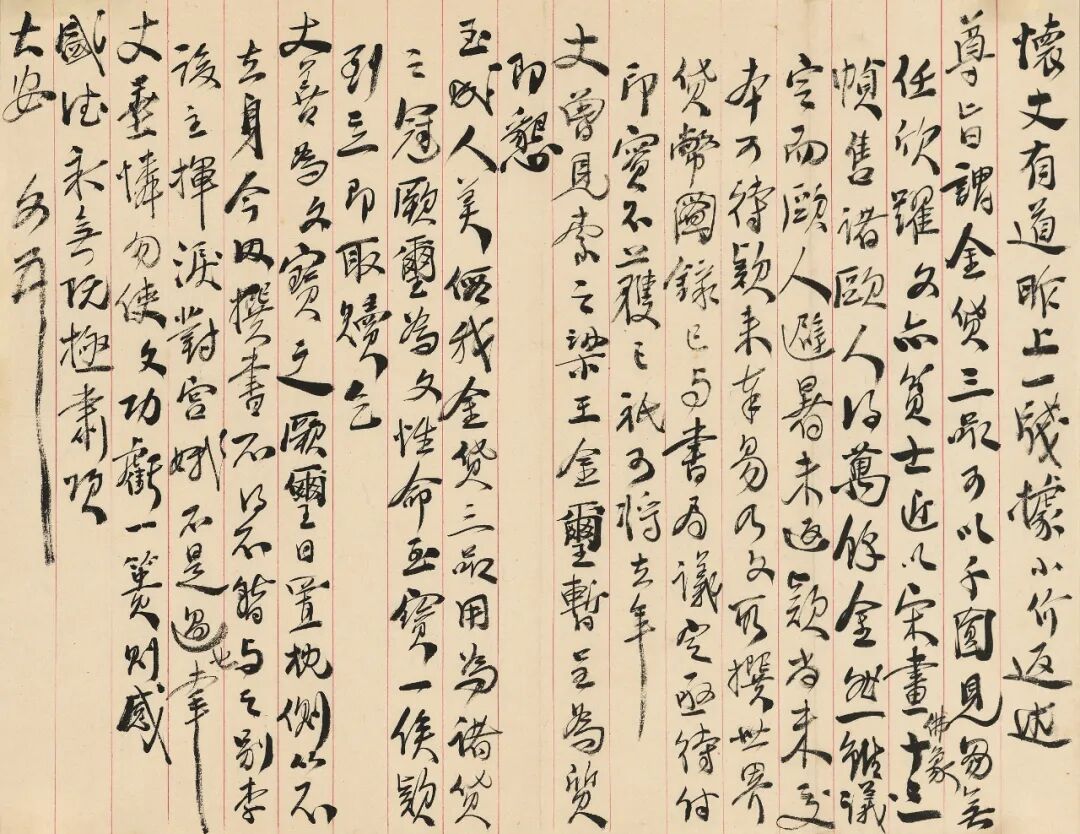 懷丈有道昨上一牋據小价返述
尊旨謂金貨三品可以千圓見易無
任欣躍文亦貧士近以宋畫佛象十三
幀售諸歐人得萬餘金然雖議
定而歐人避暑未返款尚未交
本可待款來奉易乃文所撰世界
貨幣圖錄已與書局議定亟待付
印實不獲已祇可將去年
丈曾見索之梁王金璽暫呈為質
即懇
玉成人美俪我金貨三品用為諸貨
之冠厥璽為文性命至寶一俟款
到立即取贖乞
丈善為文寶之厥璽日置枕側以不
去身今因撰書不得不暫與之別李
後主揮淚對宮娥不是過也幸
丈垂憐勿使文功虧一簣則感
感德永無既極肅頌
大安 文頓首